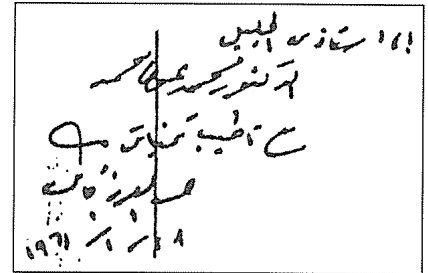 الى استاذى الجليل
الدكتور محمد عوض محمد
مع أطيب تمنياتى
١٩٦١